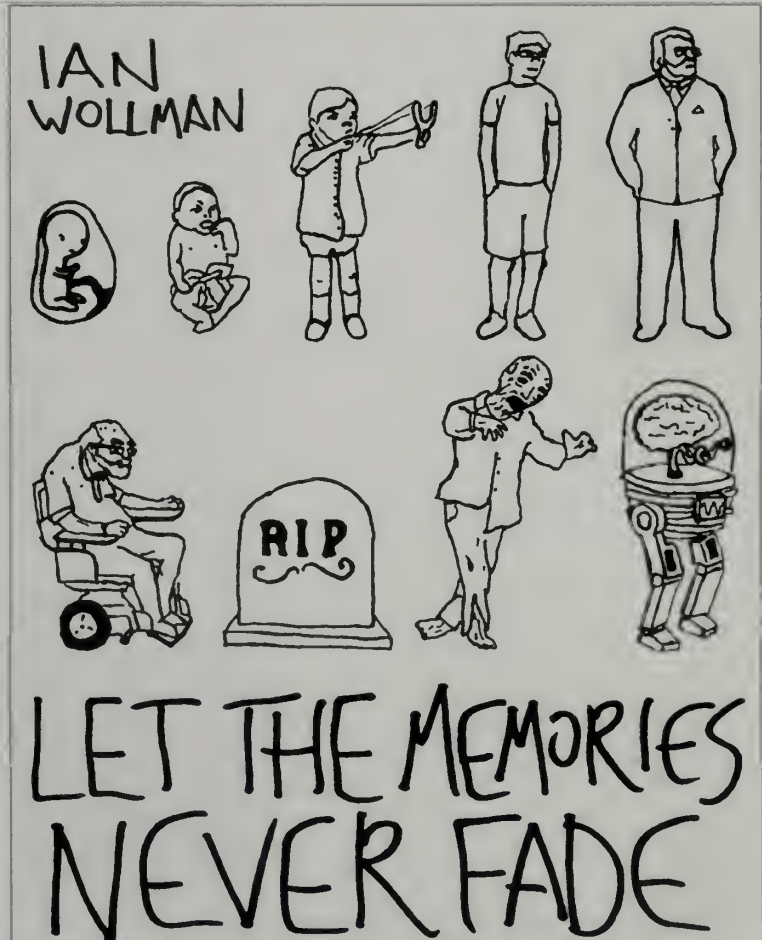 IAN
WOLLMAN
RIP
LET THE MEMORIES
NEVER FADE